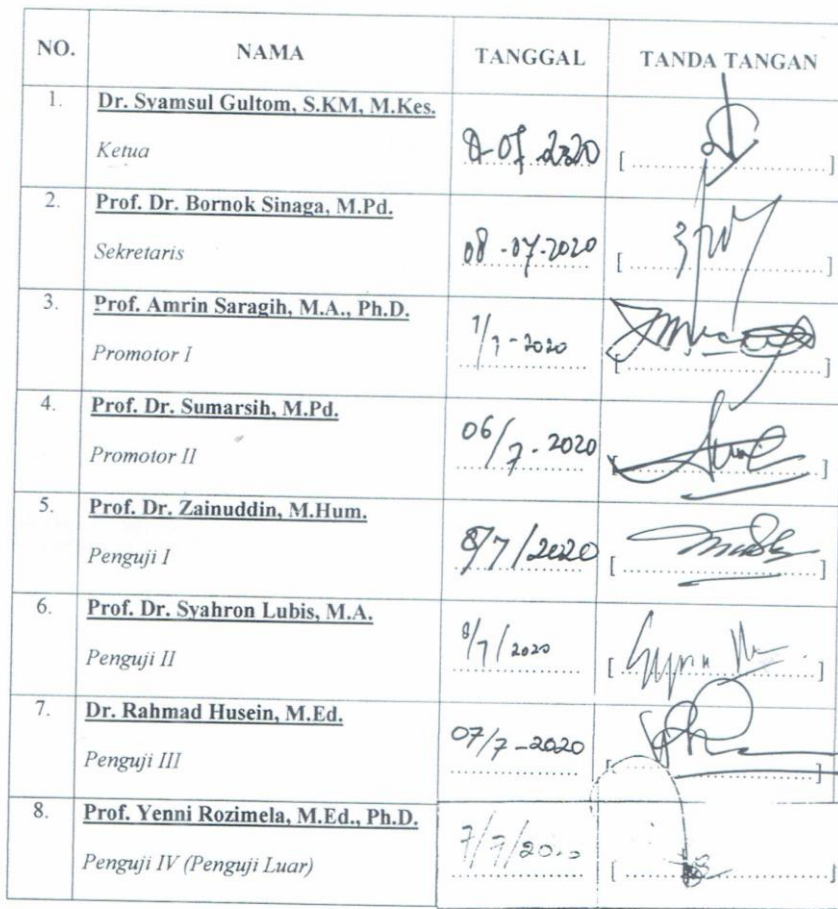 NO. NAMA TANGGAL TANDA TANGAN
1. Dr. Syamsul Gultom, S.KM, M.Kes.
Ketua 8-07 2020 [ .................... ]
2. Prof. Dr. Bornok Sinaga, M.Pd.
Sekretaris 08 -07-2020 [ .................... ]
3. Prof. Amrin Saragih, M.A., Ph.D.
Promotor I 7/7-2020 [ .................... ]
4. Prof. Dr. Sumarsih, M.Pd.
Promotor II 06/7-2020 [ .................... ]
5. Prof. Dr. Zainuddin, M.Hum.
Penguji I 8/7/2020 [ .................... ]
6. Prof. Dr. Syahron Lubis, M.A.
Penguji II 8/7/2020 [ .................... ]
7. Dr. Rahmad Husein, M.Ed.
Penguji III 07/7-2020 [ .................... ]
8. Prof. Yenni Rozimela, M.Ed., Ph.D.
Penguji IV (Penguji Luar) [ .................... ]